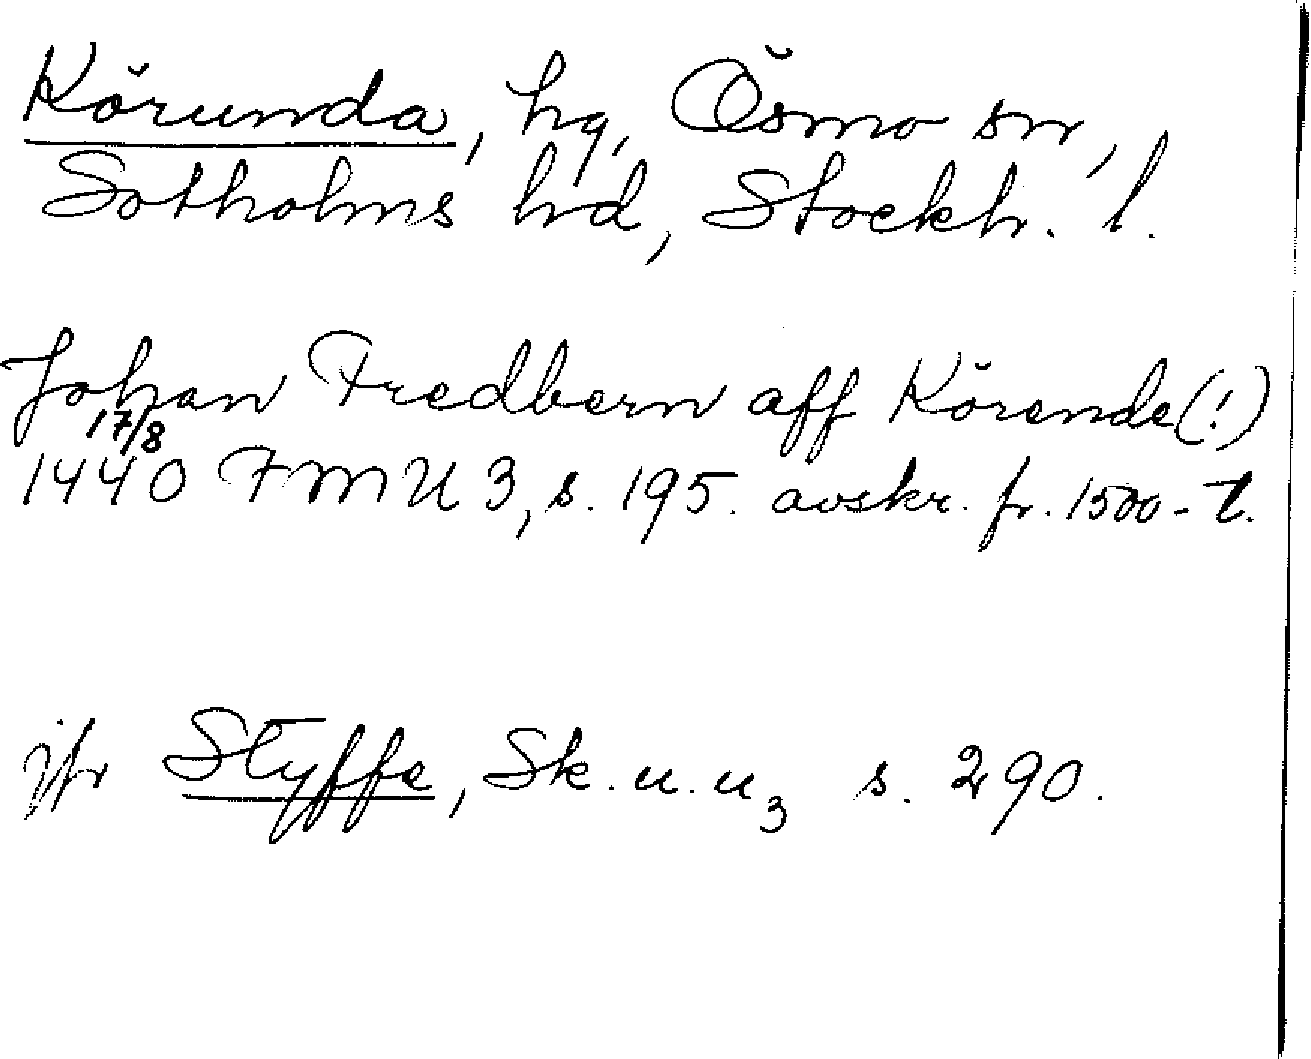 Körunda, hg, Ösmo sn,
Sotholms hd, Stockh. l.
Johan Fredbern aff Körende(!)
17/8
1440 FMU 3, s. 195. avskr. fr. 1500-t.
jfr Styffe, Sk.u.u₃ s. 290.